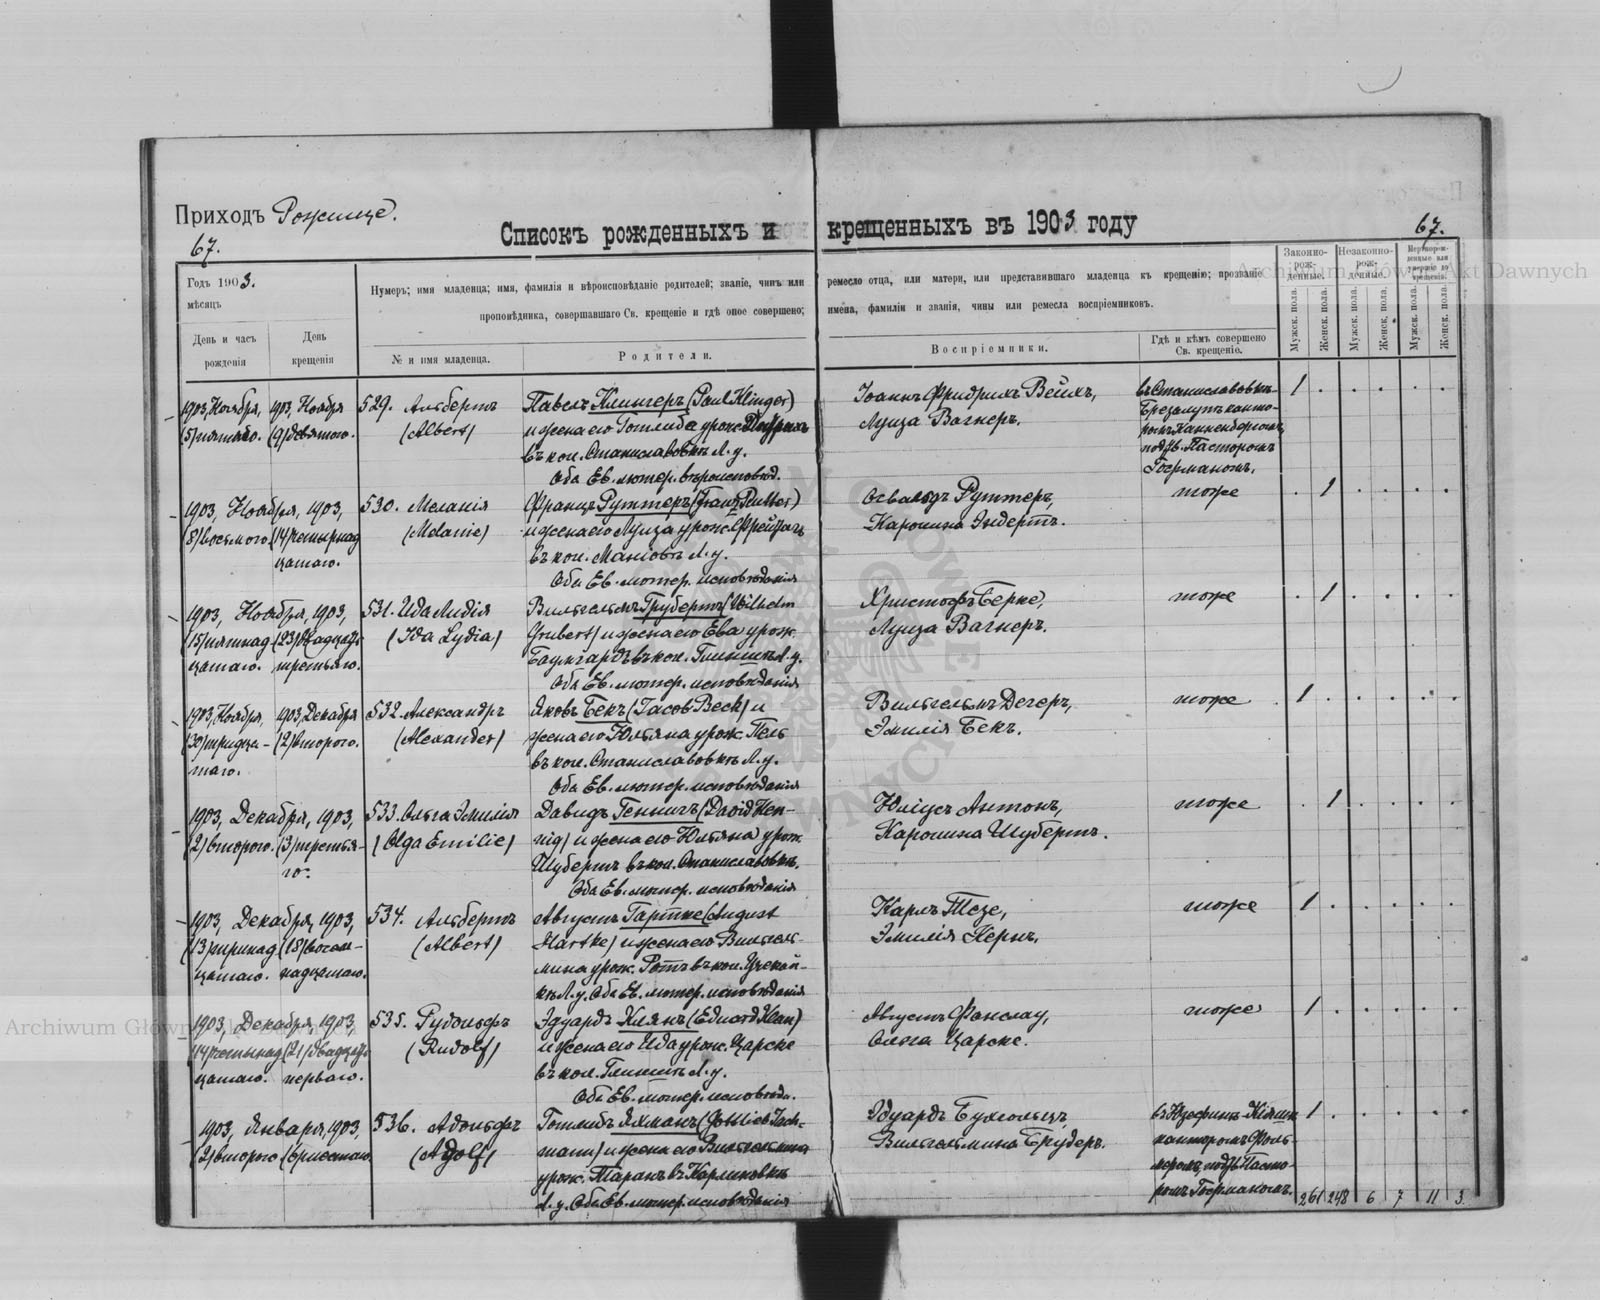 Приходъ Рожище.
67.
Списокъ рожденныхъ и крещенныхъ въ 1903 году
67.
Годъ 1903.
мѣсяцъ
День и часъ
рожденія
День
крещенія
Нумеръ; имя младенца; имя, фамилія и вѣроисповѣданіе родителей; званіе, чинъ или
проповѣдника, совершавшаго Св. крещеніе и гдѣ оное совершено;
№ и имя младенца.
Родители.
ремесло отца, или матери, или представившаго младенца къ крещенію; прозваніе
имена, фамиліи и званія, чины или ремесла воспріемниковъ.
Воспріемники.
Гдѣ и кѣмъ совершено
Св. крещеніе.
Законно-
рож-
денные.
Незаконно-
рож-
денные.
Мужск. пола.
Женск. пола.
Мужск. пола.
Женск. пола.
Мужск. пола.
Женск. пола.
1903, Ноября,
(5) пятаго.
1903, Ноября
(9) девятаго.
529. Альбертъ
(Albert)
Павелъ Клингеръ (Paul Klinger)
и жена его Готлиба урож.
въ кол. Станиславовкѣ Л. у.
Оба Ев. лютер. вѣроисповѣд.
Іоаннъ Фридрихъ Вейхъ,
Луиза Вагнеръ.
въ Станиславовкѣ-
канто-
ромъ
подтв. Пасторомъ
Германомъ.
1
1903, Ноября, 1903,
(8) восьмого. (14) четырнад
цатаго.
530. Меланія
(Melanie)
Францъ Руттеръ (Franz Rutter)
и жена его Луиза урож. Фрейтагъ
въ кол. Маніовъ Л. у.
Оба Ев. лютер. исповѣданія
Освальдъ Руттеръ,
Каролина Эндертъ.
тоже
1
1903, Ноября, 1903,
(15) пятнад (23) двадцать
цатаго. третьяго.
531. Ида Лидія
(Ida Lydia)
Вильгельмъ Грубертъ (Wilhelm
Grubert) и жена его Ева урож.
Баумгардъ въ кол. Л. у.
Оба Ев. лютер. исповѣданія
Христофъ Берке,
Луиза Вагнеръ.
тоже
1
1903, Ноября, 1903, Декабря
(30) тридца- (2) второго.
таго.
532. Александръ
(Alexander)
Яковъ Бекъ (Jacob Beck) и
жена его Юльяна урож. Пель
въ кол. Станиславовкѣ Л. у.
Оба Ев. лютер. исповѣданія
Вильгельмъ Дегеръ,
Эмилія Бекъ.
тоже
1
1903, Декабря, 1903,
(2) второго. (3) третья-
го.
533. Ольга Эмилія
(Olga Emilie)
Давидъ Геннигъ (David Hen-
nig) и жена его Юльяна урож.
Шубертъ въ кол. Станиславовкѣ.
Оба Ев. лютер. исповѣданія
Юліусъ Антонъ,
Каролина Шубертъ.
тоже
1
1903, Декабря, 1903,
(13) тринад (18) восем-
цатаго. надцатаго.
534. Альбертъ
(Albert)
Августъ Гартке (August
Hartke) и жена его Вильгель-
мина урож. Ротъ въ кол.
Л. у. Оба Ев. лютер. исповѣданія
Карлъ Тезе,
Эмилія Кернъ.
тоже
1
1903, Декабря, 1903,
(14) четырнад (21) двадцать
цатаго. перваго.
535. Рудольфъ
(Rudolf)
Эдуардъ Клянъ (Eduard Klan)
и жена его Ида урож. Царске
въ кол. Л. у.
Оба Ев. лютер. исповѣда.
Августъ Фанслау,
Ольга Царске.
тоже
1
1903, Января, 1903,
(2) второго (6) шестаго.
536. Адольфъ
(Adolf)
Готлибъ Яхманъ (Gottlieb Jach-
mann) и жена его Вильгельмина
урож. Таранъ въ Карлиновкѣ
Л. у. Оба Ев. лютер. исповѣданія
Эдуардъ Бухгольцъ
Вильгельмина Брудеръ.
въ Юзефинѣ
канторомъ
подтв. Пасто-
ромъ Германомъ.
1
261 248 6 7 11 3.
Archiwum Główne Akt Dawnych